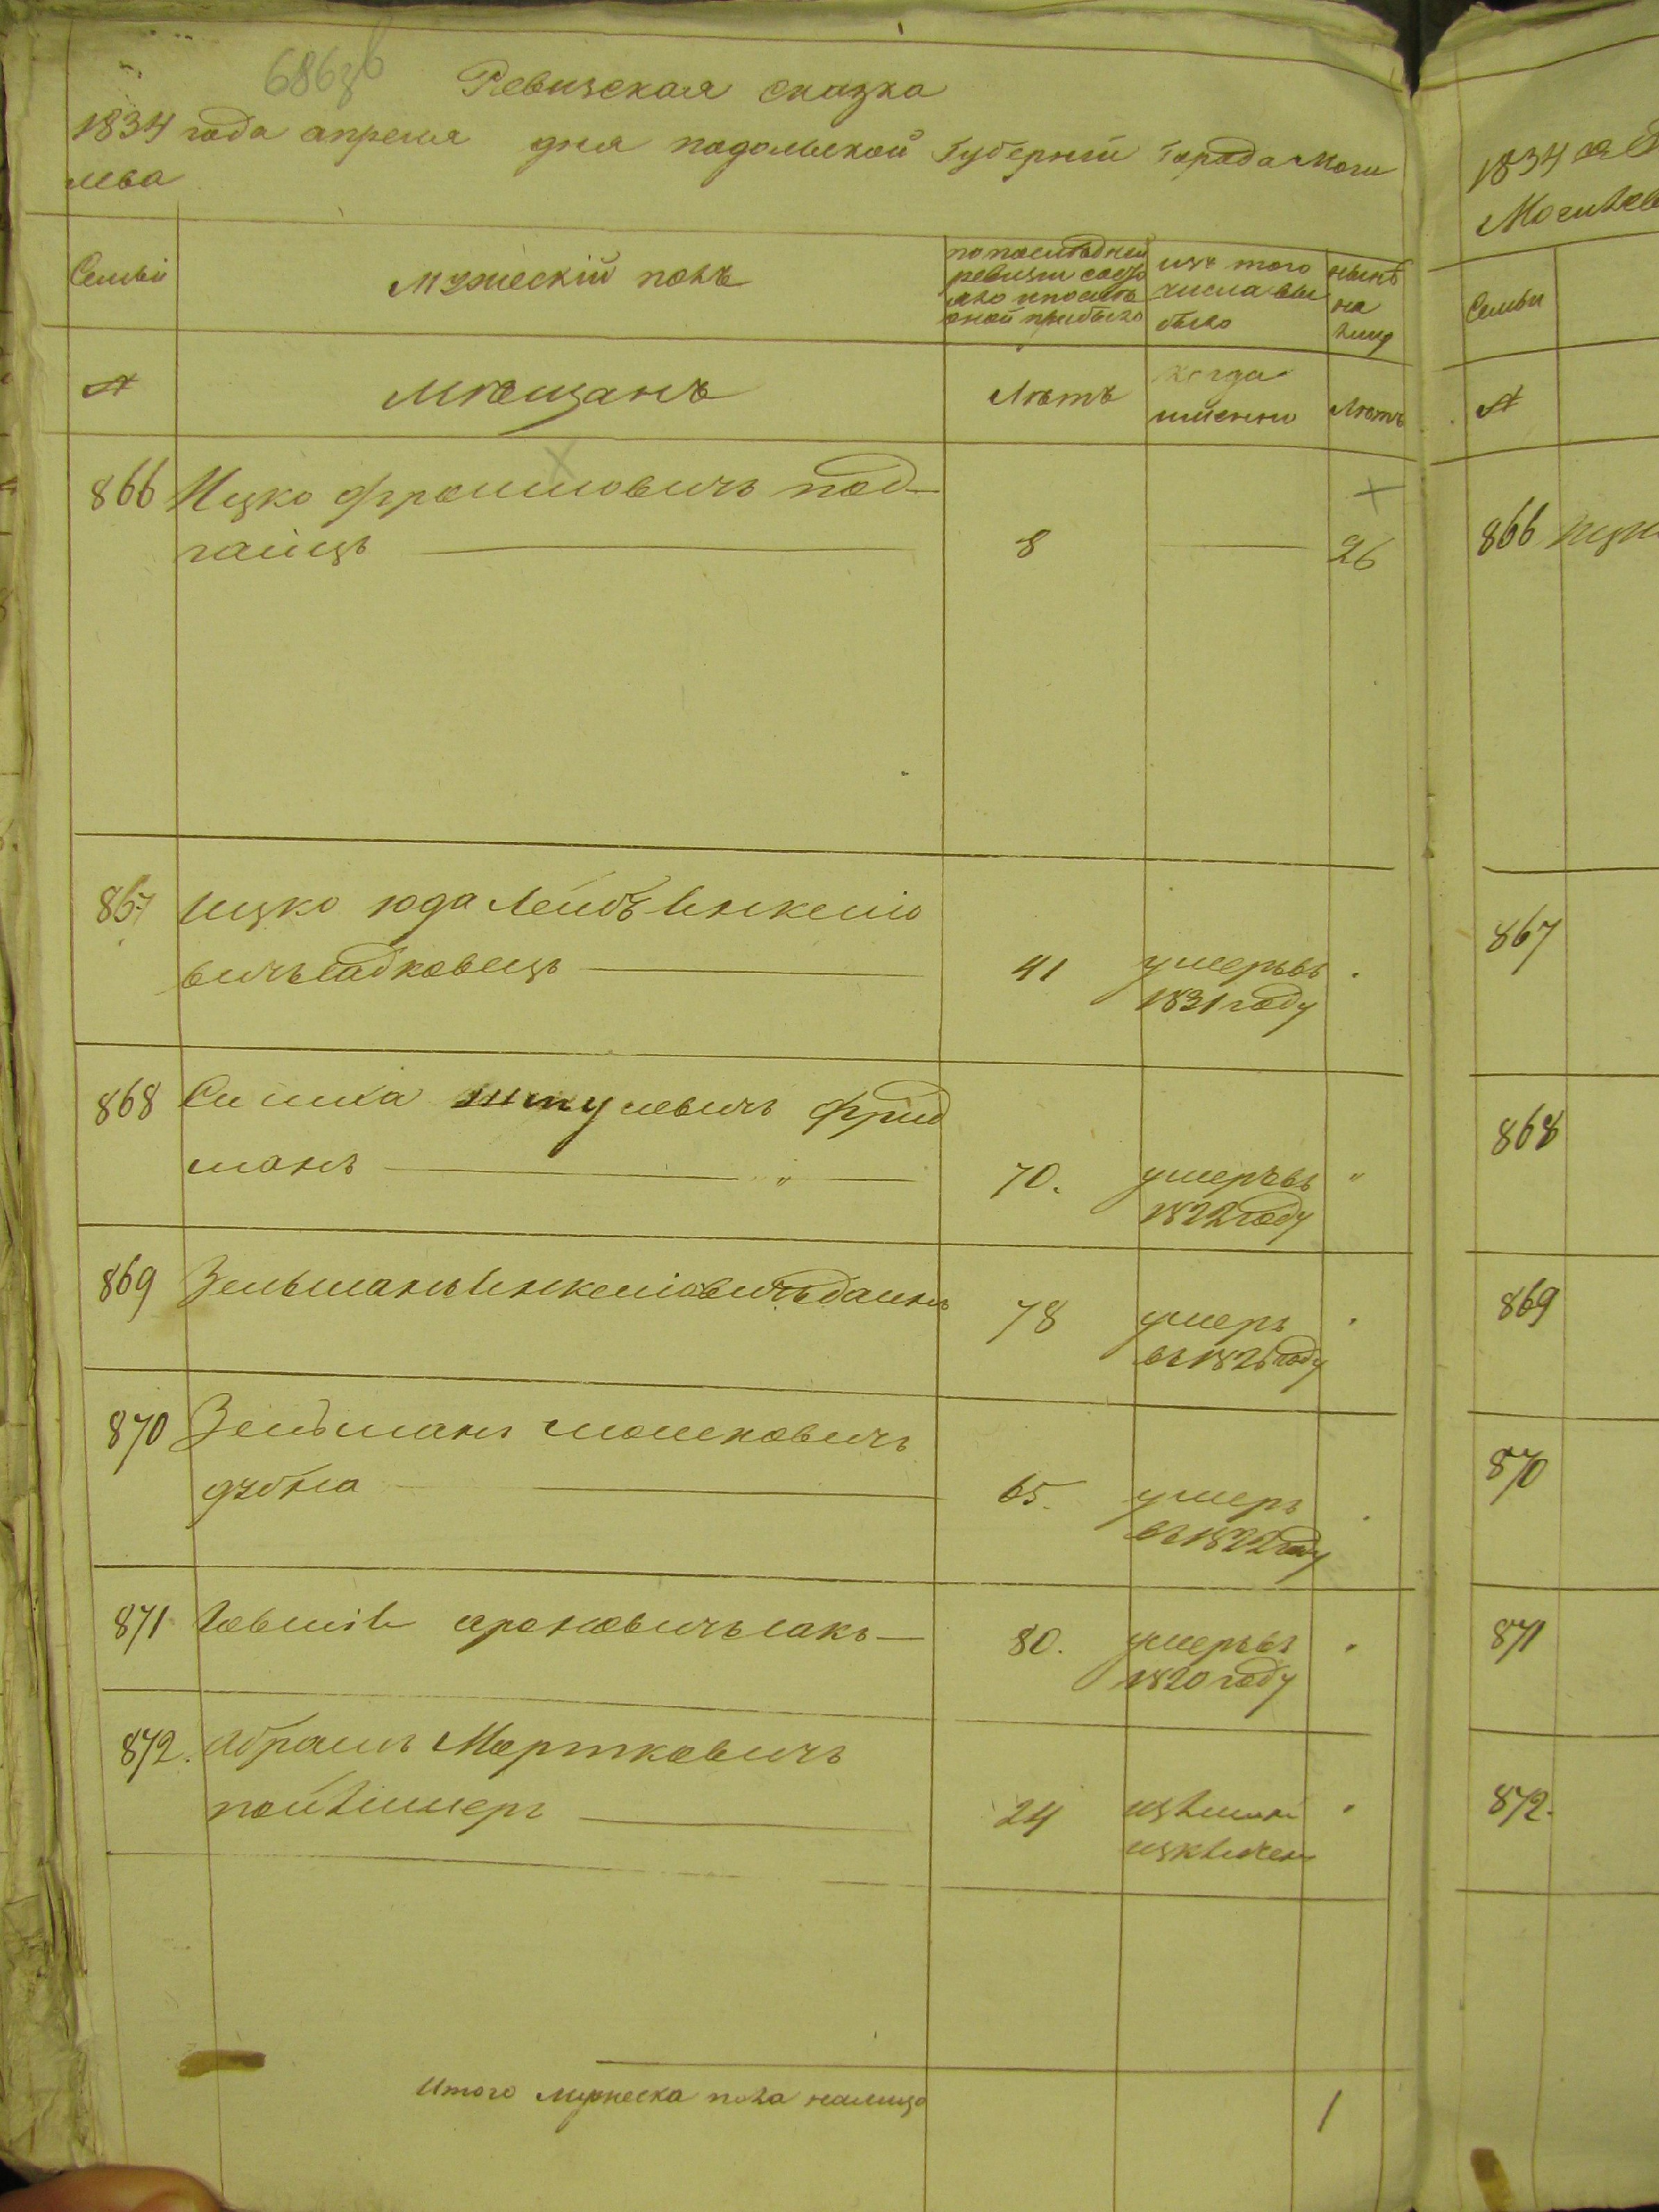 686зв
Ревизская сказка
1834 года апреля дня подольской Губернии Города Моги
лева
Семьи
Мужескій полъ
по последней
ревизіи состо
яло и после
оной прибыло
изъ того
числа вы
было
нынѣ
на
лицо
№
Мѣщанъ
Лѣтъ
когда
именно
Лѣтъ
866 Ицко Фроимовичъ под
гаицъ 8 26
867 Ицко Юда Лейбъ Янкелю
вичъ садковецъ 41 умеръ въ
1831 году
868 Симха шмулевичъ фрид
манъ 70. умеръ въ
1822 году
869 Зельманъ Янкеліовичъ даинъ 78 умеръ
въ 1826 году
870 Зельманъ мошковичъ
65. умеръ
въ 1822 году
871 ароновичъ сакъ 80. умеръ въ
1820 году
872. Абрамъ Мортковичъ
24
Итого Мужеска пола налицо 1
1834
Могилев
Семьи
№
866 Ицк
867
868
869
870
871
872.